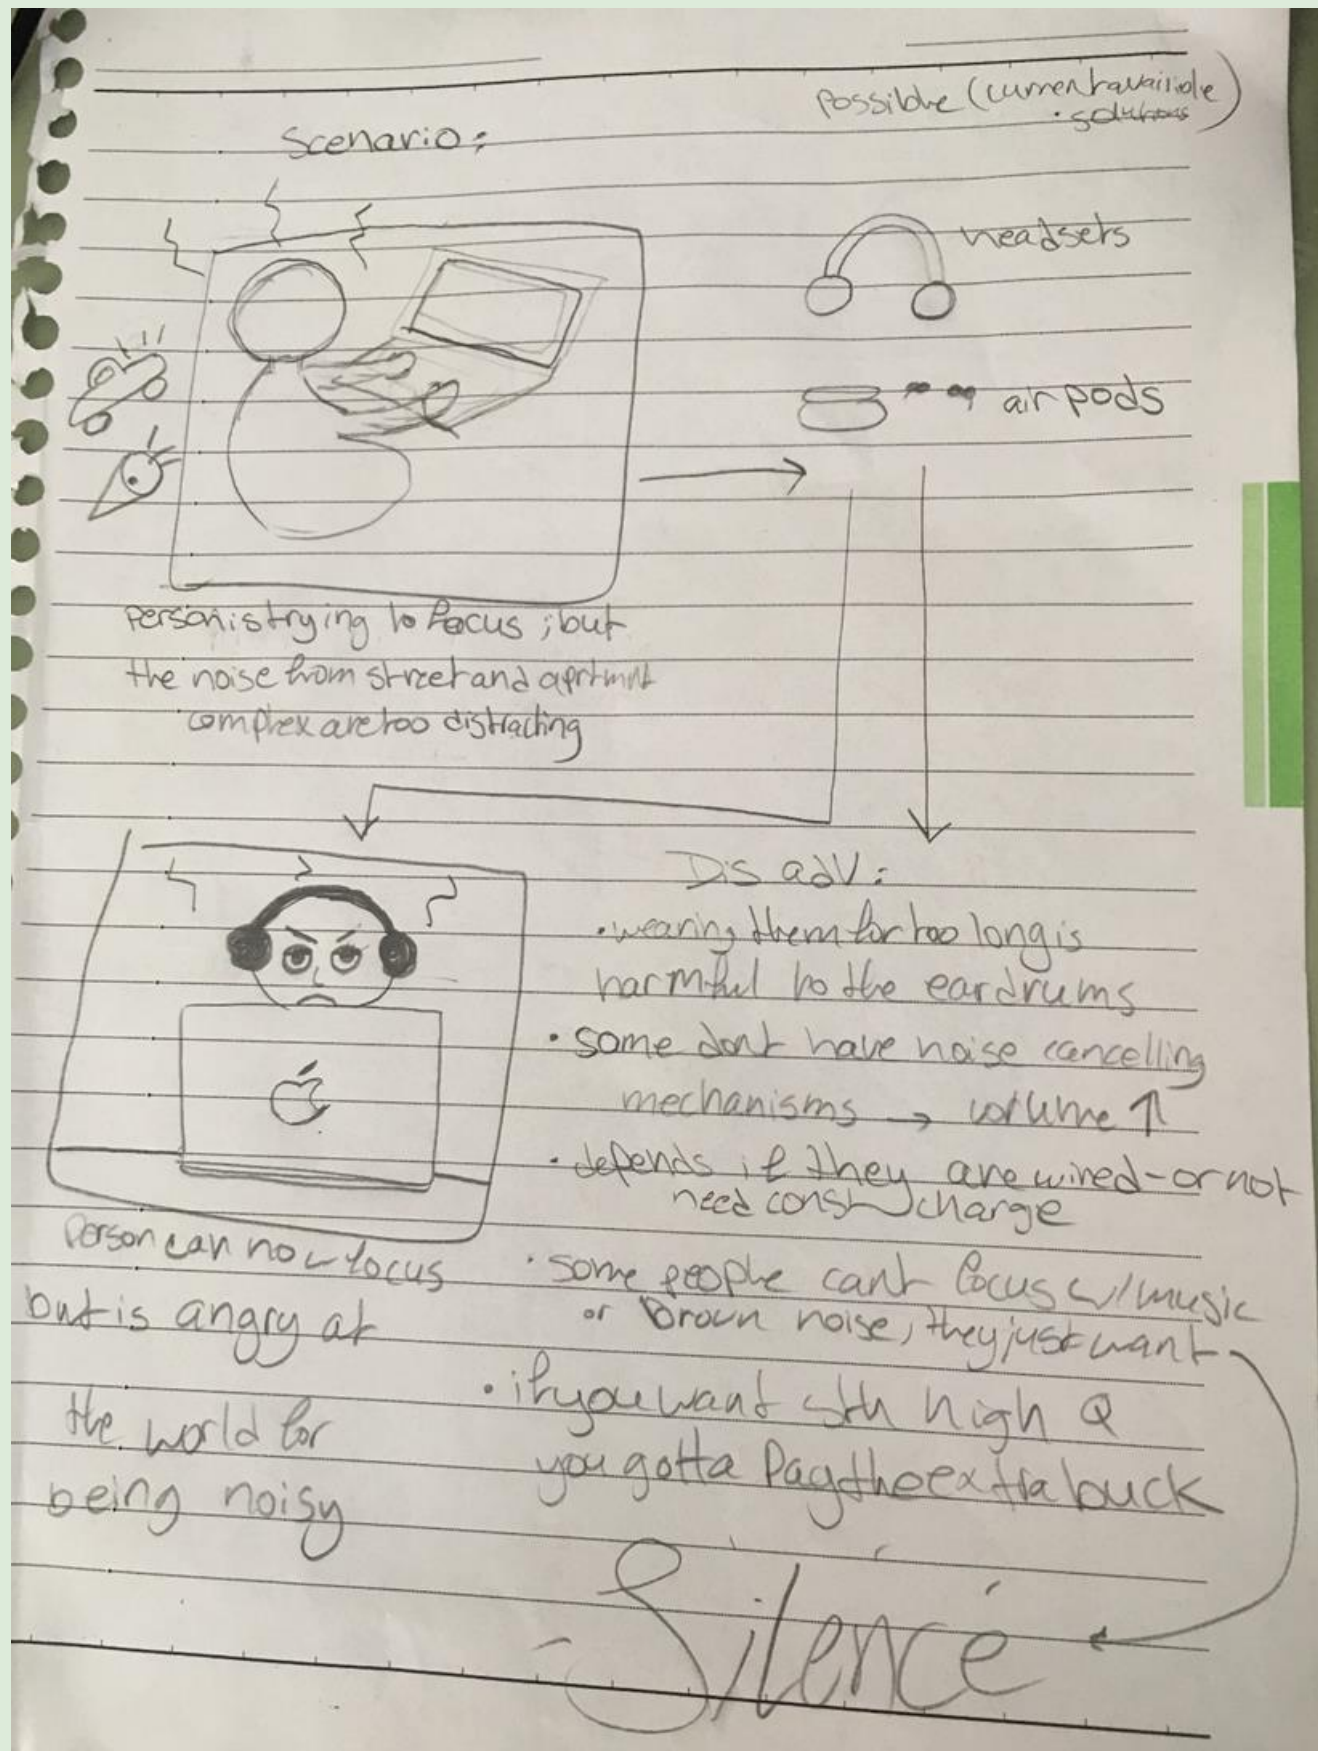 Scenario:
possible (current available
• solutions)
headsets
air pods
person is trying to focus ; but
the noise from street and aprtmnt
complex are too distracting
Dis adv:
• wearing them for too long is
harmful to the eardrums
• some dont have noise cancelling
mechanisms → volume ↑
• depends if they are wired - or not
need const charge
• some people cant focus w/ music
or brown noise, they just want
• if you want sth high Q
you gotta pay the extra buck
Silence
person can now focus
but is angry at
the world for
being noisy